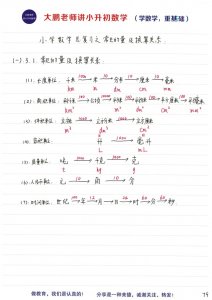 大鹏老师讲小升初数学 (学数学,重基础)
小学数学总复习之常见的量及换算关系
(一) 3.1. 常见的量及换算关系
(1). 长度单位: 千米 1000 米 10 分米 10 厘米 10 毫米
km m dm cm mm
(2). 面积单位: 平方千米 100 公顷 10000 平方米 100 平方分米 100 平方厘米
km² m² dm² cm²
(3). 体积单位: 立方米 1000 立方分米 1000 立方厘米
m³ dm³ cm³
(4). 容积单位: 升 1000 毫升
L mL
(5). 质量单位: 吨 1000 千克 1000 克
t kg g
(6). 人民币单位: 元 10 角 10 分
(7). 时间单位: 世纪 100 年 12 月 日 24 时 60 分 60 秒
做教育,我们是认真的! 分享是一种美德,感谢关注、转发!